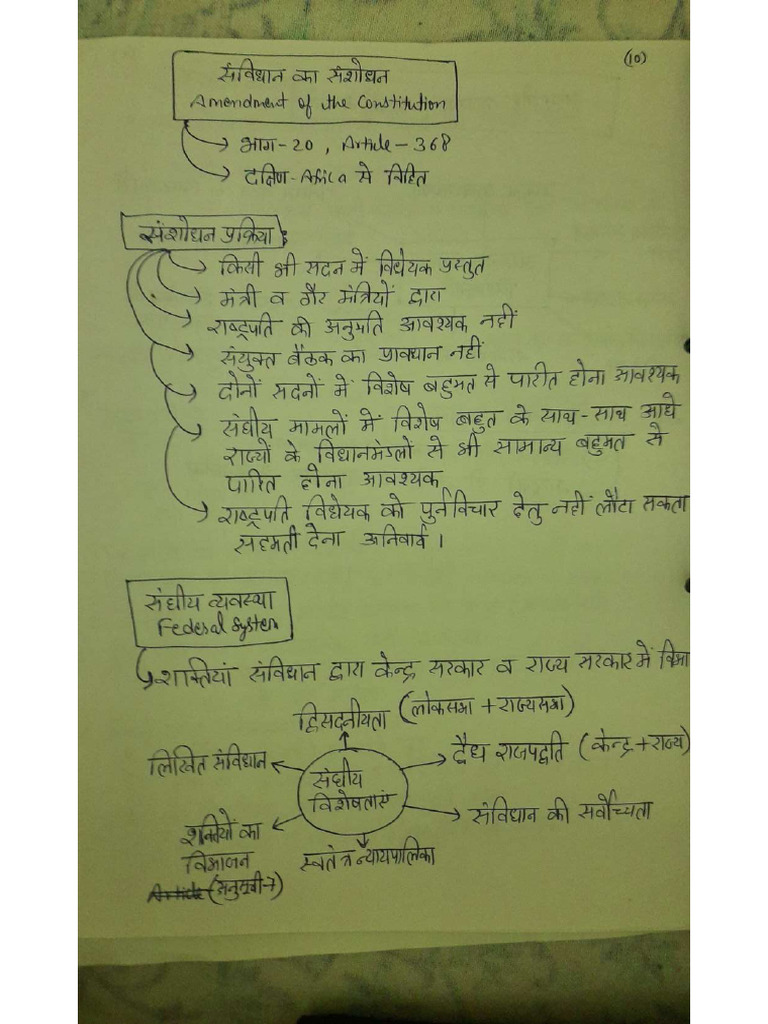 (10)
संविधान का संशोधन
Amendment of the Constitution
भाग-20, Article-368
दक्षिण-Africa से विहित
संशोधन प्रक्रिया:
किसी भी सदन में विधेयक प्रस्तुत
मंत्री व गैर मंत्रियों द्वारा
राष्ट्रपति की अनुमति आवश्यक नहीं
संयुक्त बैठक का प्रावधान नहीं
दोनों सदनों में विशेष बहुमत से पारीत होना आवश्यक
संघीय मामलों में विशेष बहुत के साथ-साथ आधे
राज्यों के विधानमंडलों से भी सामान्य बहुमत से
पारित होना आवश्यक
राष्ट्रपति विधेयक को पुर्नविचार हेतु नहीं लौटा सकता
सहमती देना अनिवार्य।
संघीय व्यवस्था
Federal System
शक्तियां संविधान द्वारा केन्द्र सरकार व राज्य सरकार में विभा
द्विसदनीयता (लोकसभा + राज्यसभा)
लिखित संविधान
द्वैध राजपद्धति (केन्द्र + राज्य)
संघीय
विशेषताएं
संविधान की सर्वोच्यता
शक्तियों का
विभाजन
स्वतंत्र न्यायपालिका
Article (अनुसूची-7)